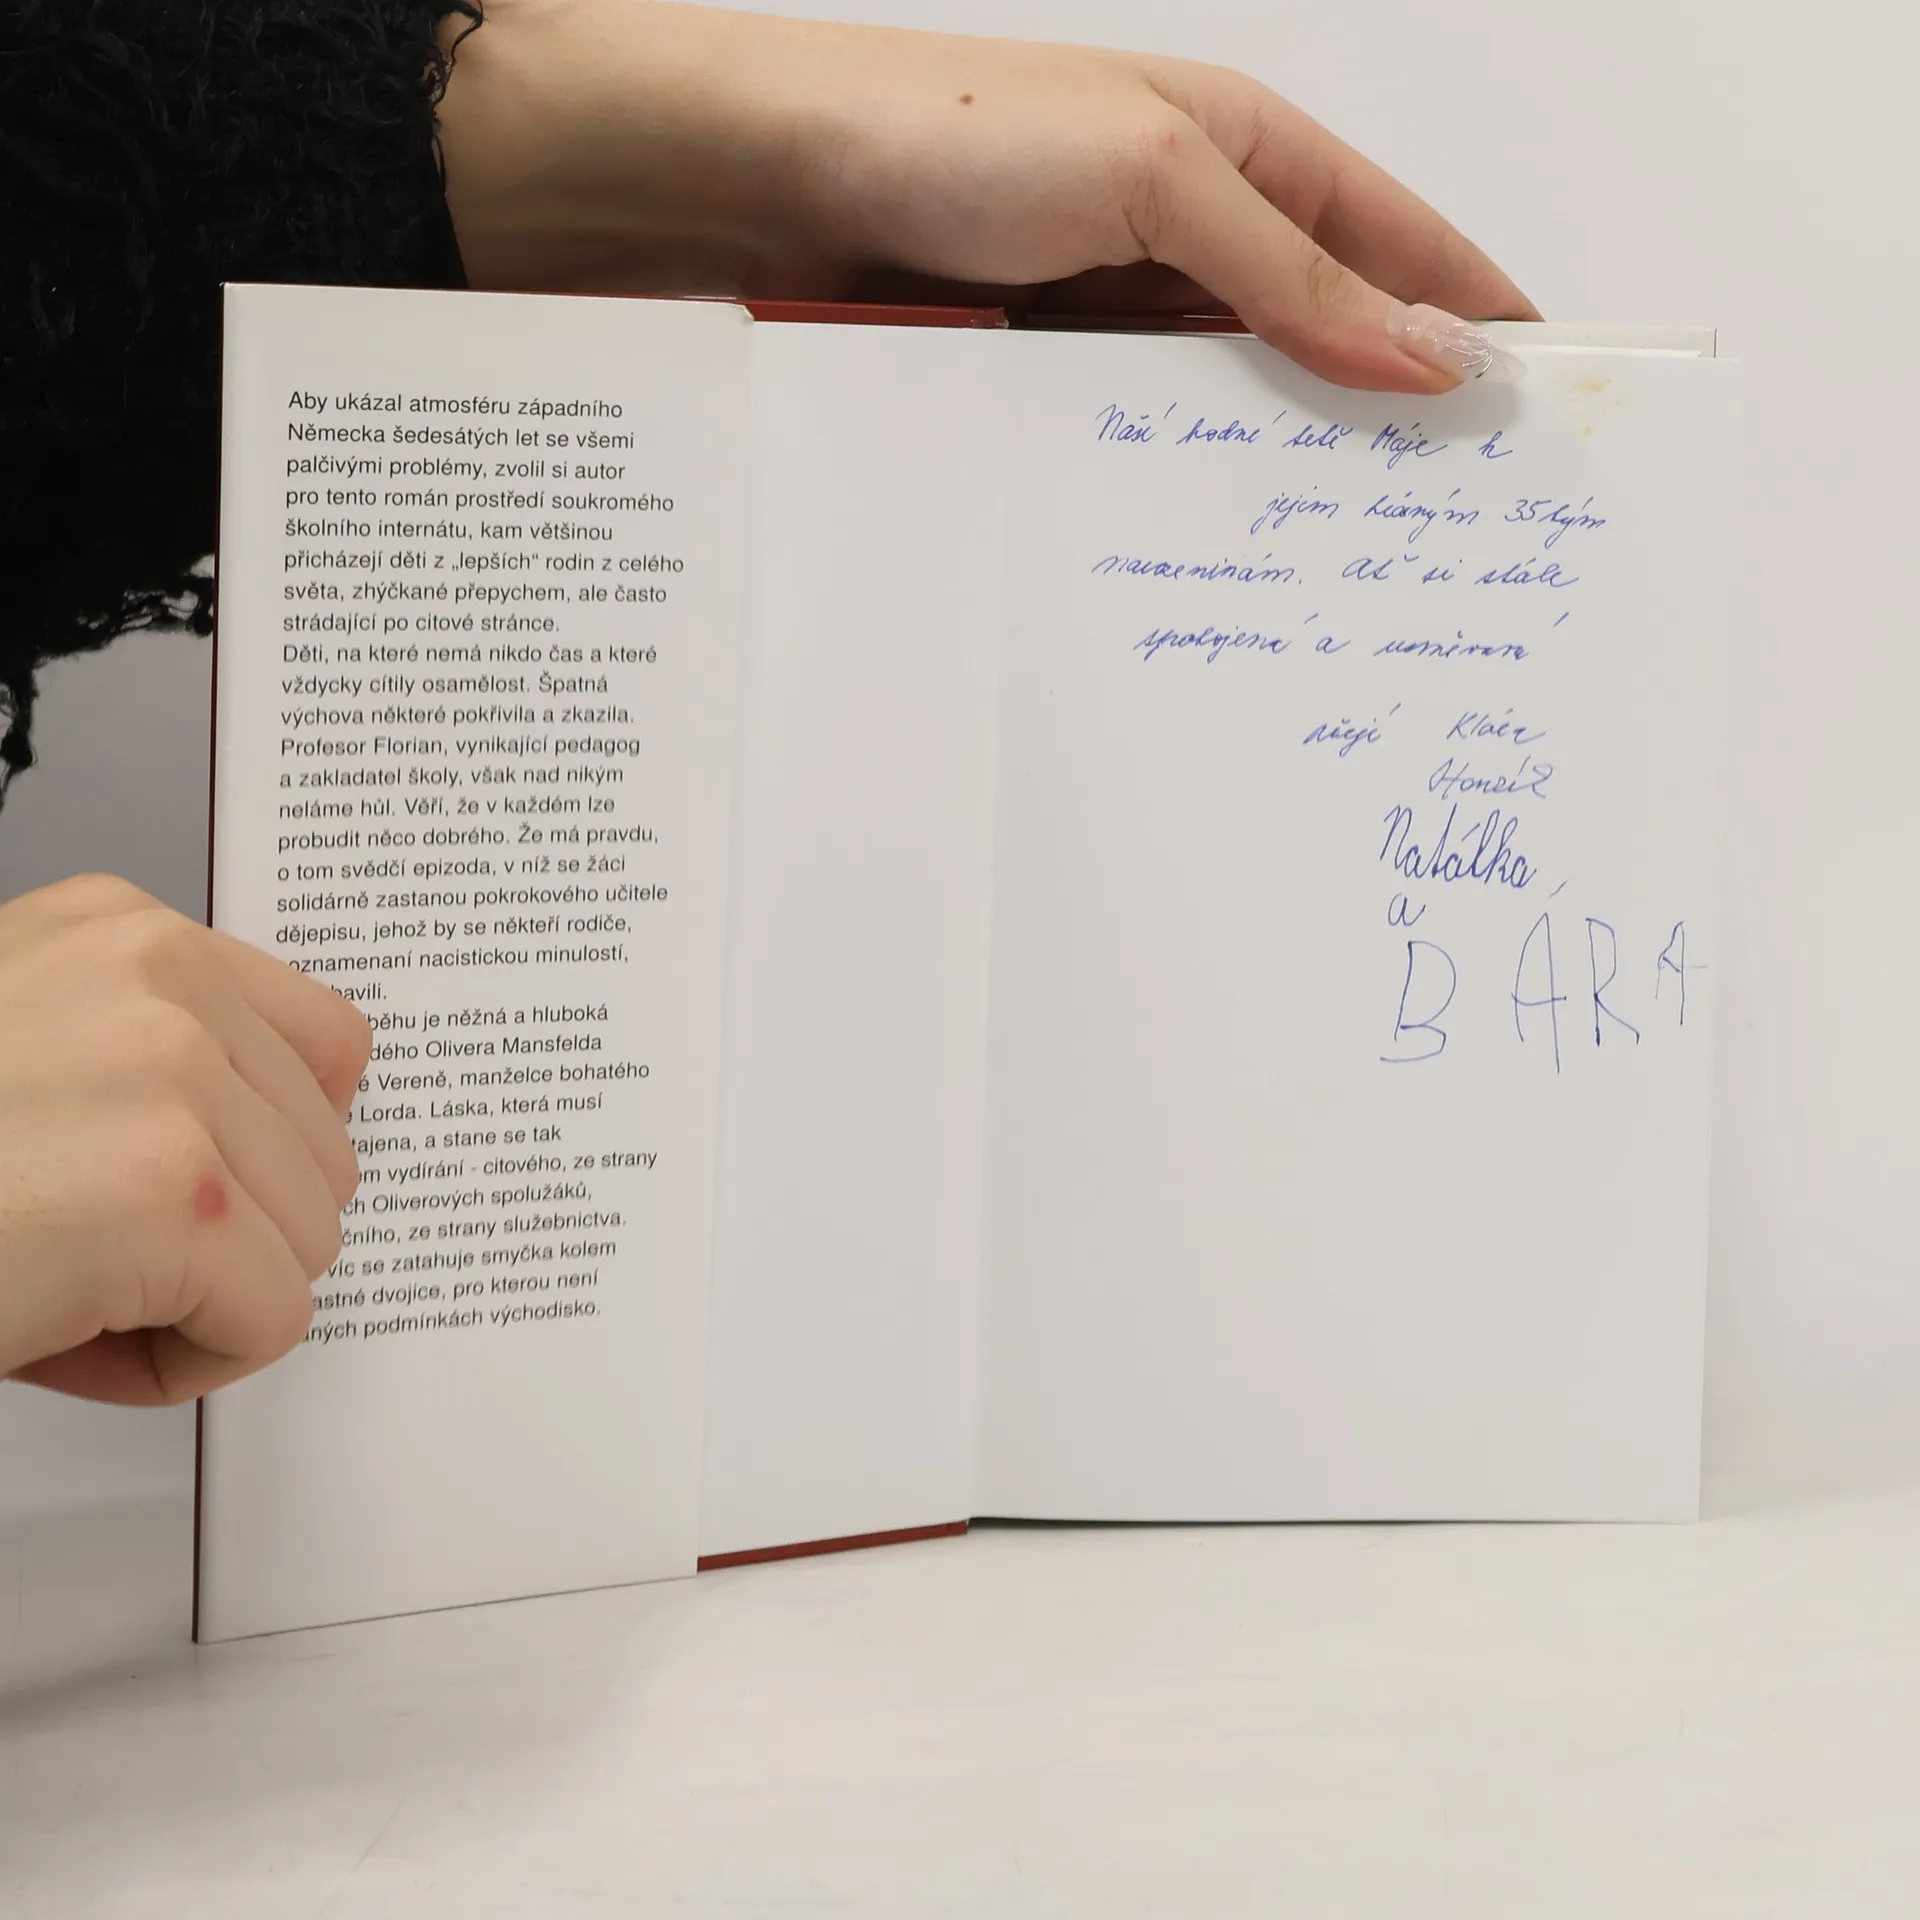 Aby ukázal atmosféru západního
Německa šedesátých let se všemi
palčivými problémy, zvolil si autor
pro tento román prostředí soukromého
školního internátu, kam většinou
přicházejí děti z „lepších“ rodin z celého
světa, zhýčkané přepychem, ale často
strádající po citové stránce.
Děti, na které nemá nikdo čas a které
vždycky cítily osamělost. Špatná
výchova některé pokřivila a zkazila.
Profesor Florian, vynikající pedagog
a zakladatel školy, však nad nikým
neláme hůl. Věří, že v každém lze
probudit něco dobrého. Že má pravdu,
o tom svědčí epizoda, v níž se žáci
solidárně zastanou pokrokového učitele
dějepisu, jehož by se někteří rodiče,
oznamenaní nacistickou minulostí,
bavili.
běhu je něžná a hluboká
dého Olivera Mansfelda
é Vereně, manželce bohatého
Lorda. Láska, která musí
tajena, a stane se tak
em vydírání - citového, ze strany
ch Oliverových spolužáků,
čního, ze strany služebnictva.
víc se zatahuje smyčka kolem
astné dvojice, pro kterou není
ných podmínkách východisko.
Naší hodné tetě Máje k
jejím 35tým
narozeninám. Ať si stále
spokojená a usměvavá
přejí Klára
Honzík
Natálka,
a
BÁRA